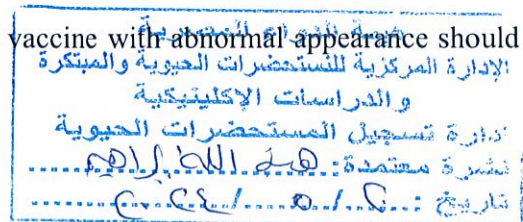 هيئة الدواء المصرية
vaccine with abnormal appearance should
الإدارة المركزية للمستحضرات الحيوية والمبتكرة
و الدراسات الإكلينيكية
إدارة تسجيل المستحضرات الحيوية
نشرة معتمدة: هبة الله إبراهيم
تاريخ: / ٥ / ٢٠٢٤